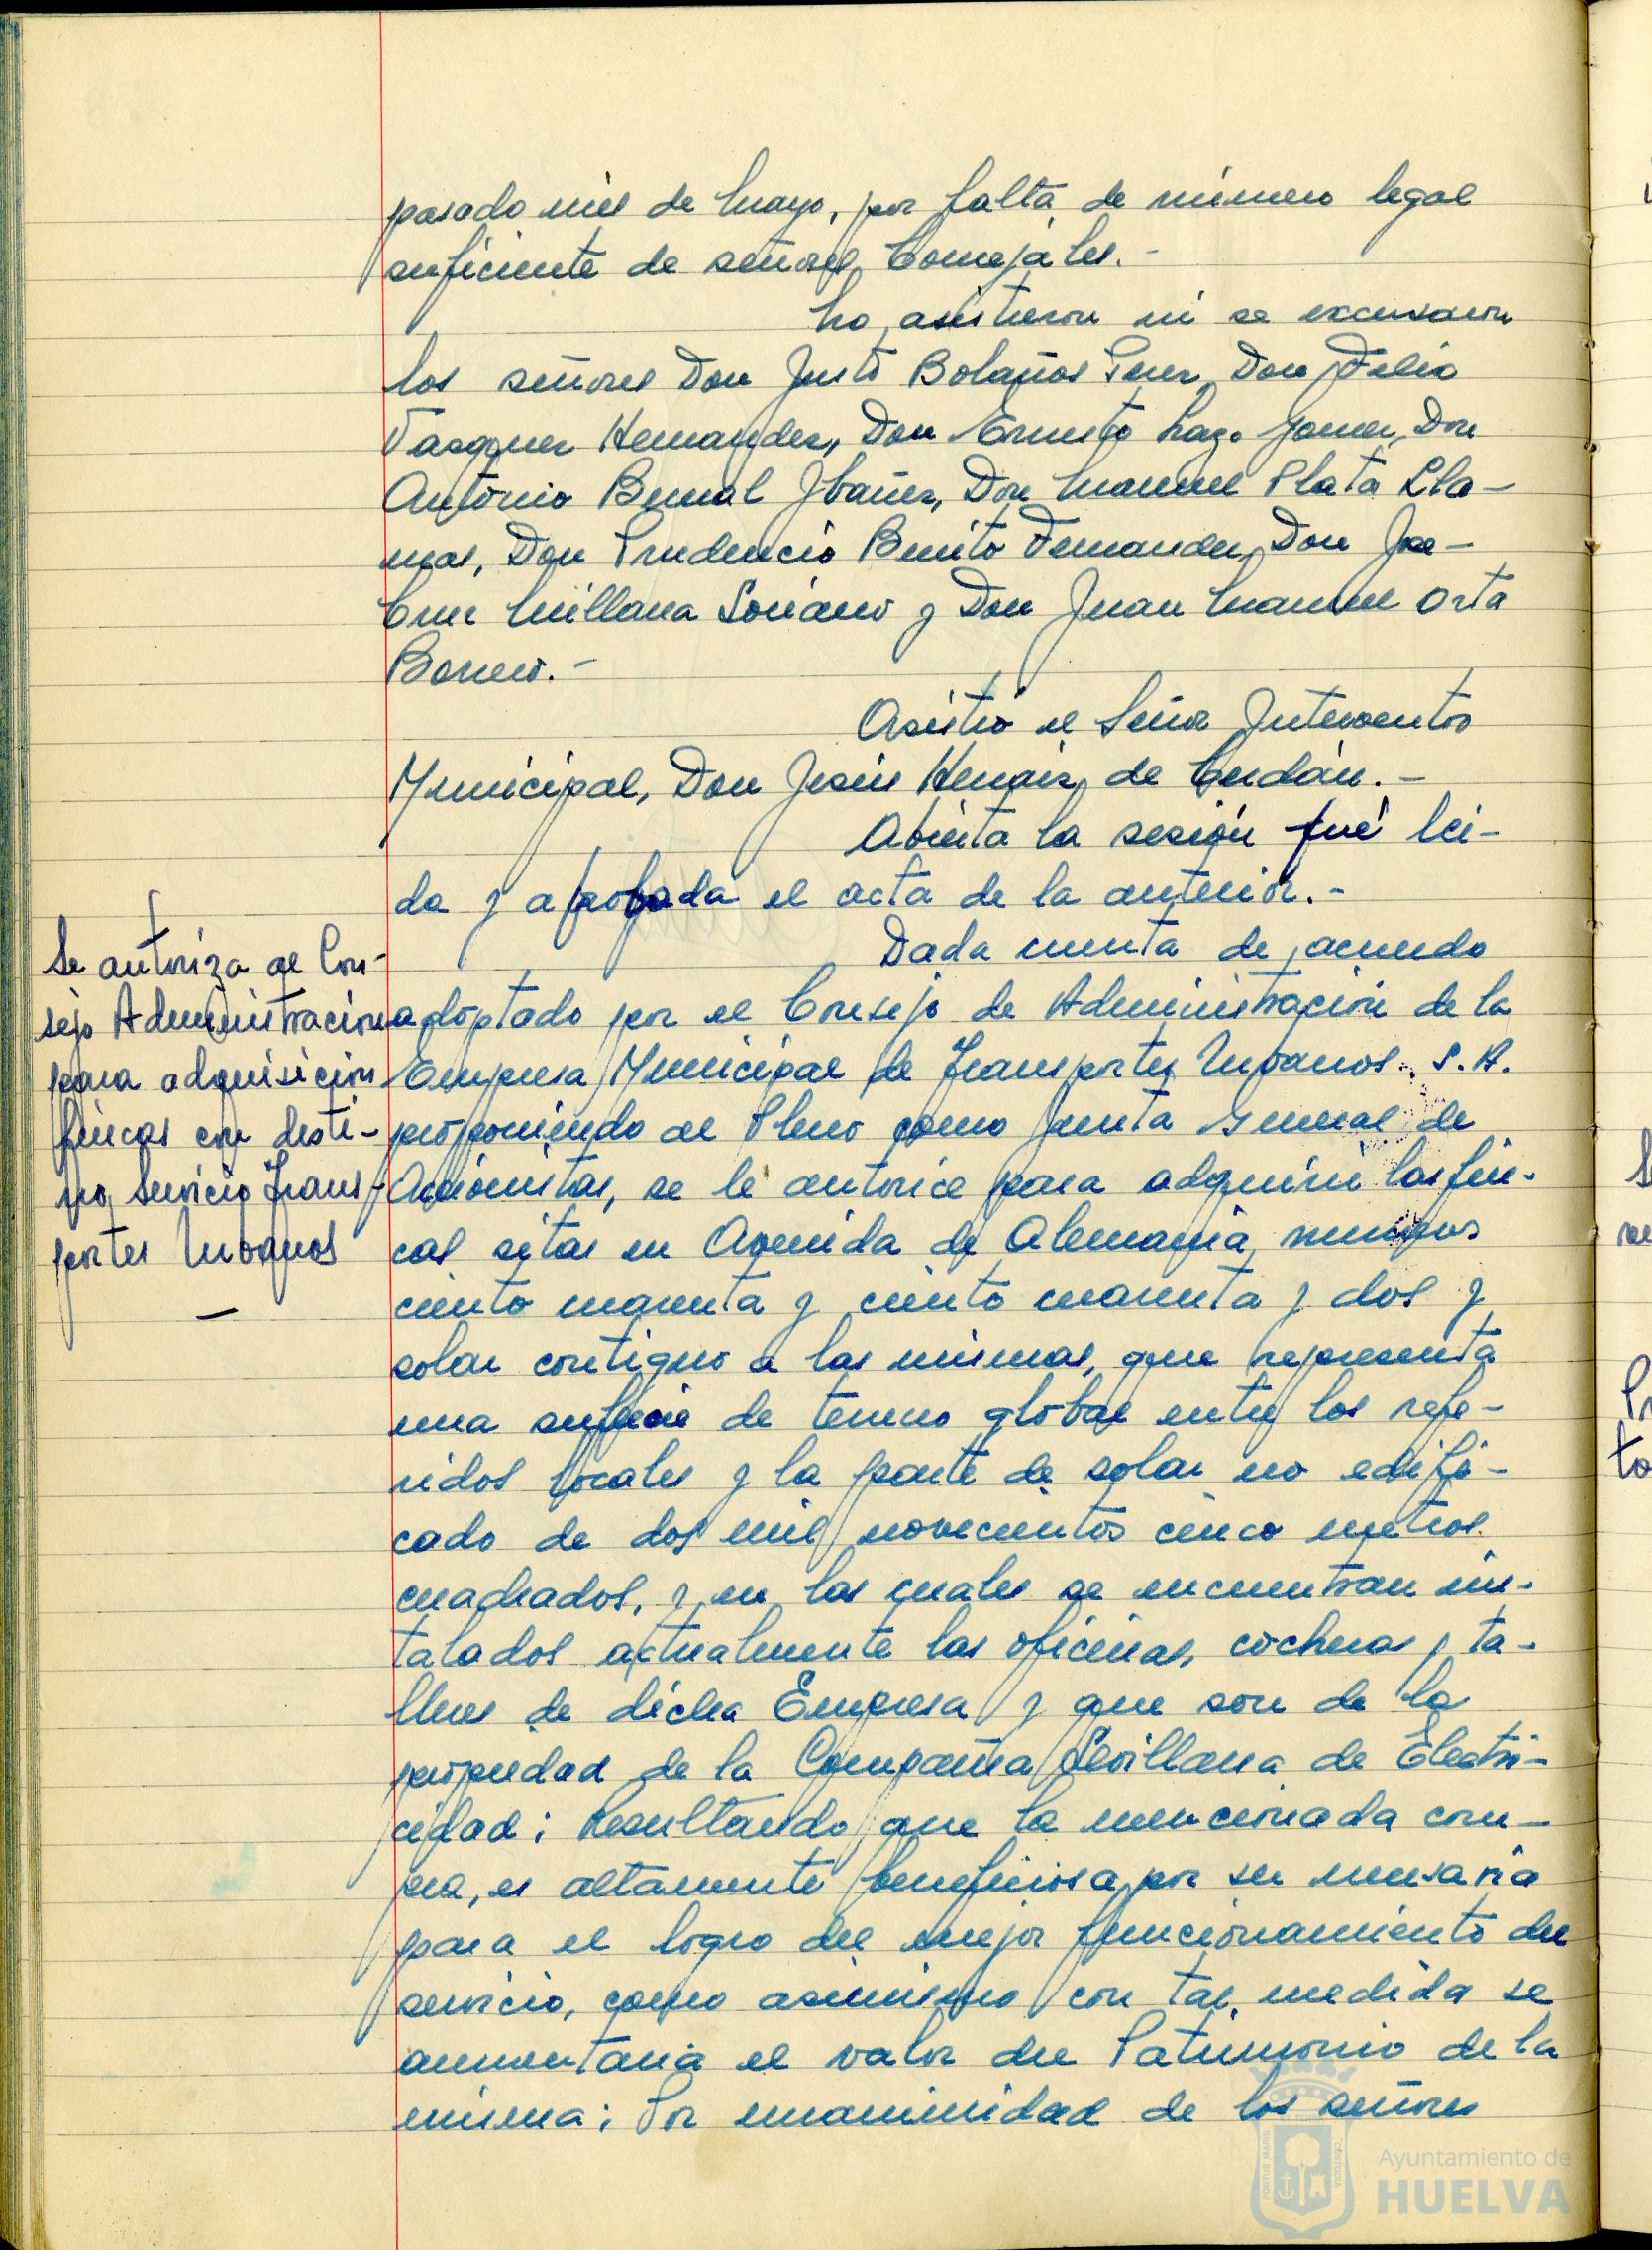 pasado mes de Mayo, por falta de número legal
suficiente de señores Concejales.-
No asistieron ni se excusaron
los señores Don Justo Bolaños Perez, Don Felix
Vazquez Hernandez, Don Ernesto Lazo Gomez, Don
Antonio Bernal Ibañez, Don Manuel Plata Lla-
mas, Don Prudencio Benito Fernandez, Don Jose
Cruz Millana Soriano y Don Juan Manuel Orta
Borrero.-
Asistió el Señor Interventor
Municipal, Don Jesús Henaiz de Cerdán.-
Abierta la sesión fué lei-
da y aprobada el acta de la anterior.-
Se autoriza al Con-
sejo Administracion
para adquisicion
fincas con desti-
no Servicio Trans-
portes Urbanos
—
Dada cuenta de acuerdo
adoptado por el Consejo de Administración de la
Empresa Municipal de Transportes Urbanos. S.A.
proponiendo al Pleno como Junta General de
Accionistas, se le autorice para adquirir las fin-
cas sitas en Avenida de Alemania, numeros
ciento cuarenta y ciento cuarenta y dos y
solar contiguo a las mismas, que representa
una superficie de terreno global entre los refe-
ridos locales y la parte de solar no edifi-
cado de dos mil novecientos cinco metros
cuadrados, y en los cuales se encuentran ins-
talados actualmente las oficinas, cocheras y ta-
lleres de dicha Empresa y que son de la
propiedad de la Compañia Sevillana de Electri-
cidad; Resultando que la mencionada com-
pra, es altamente beneficiosa por ser necesaria
para el logro del mejor funcionamiento del
servicio, como asimismo con tal medida se
aumentaria el valor del Patrimonio de la
misma; Por unanimidad de los señores
Ayuntamiento de
HUELVA